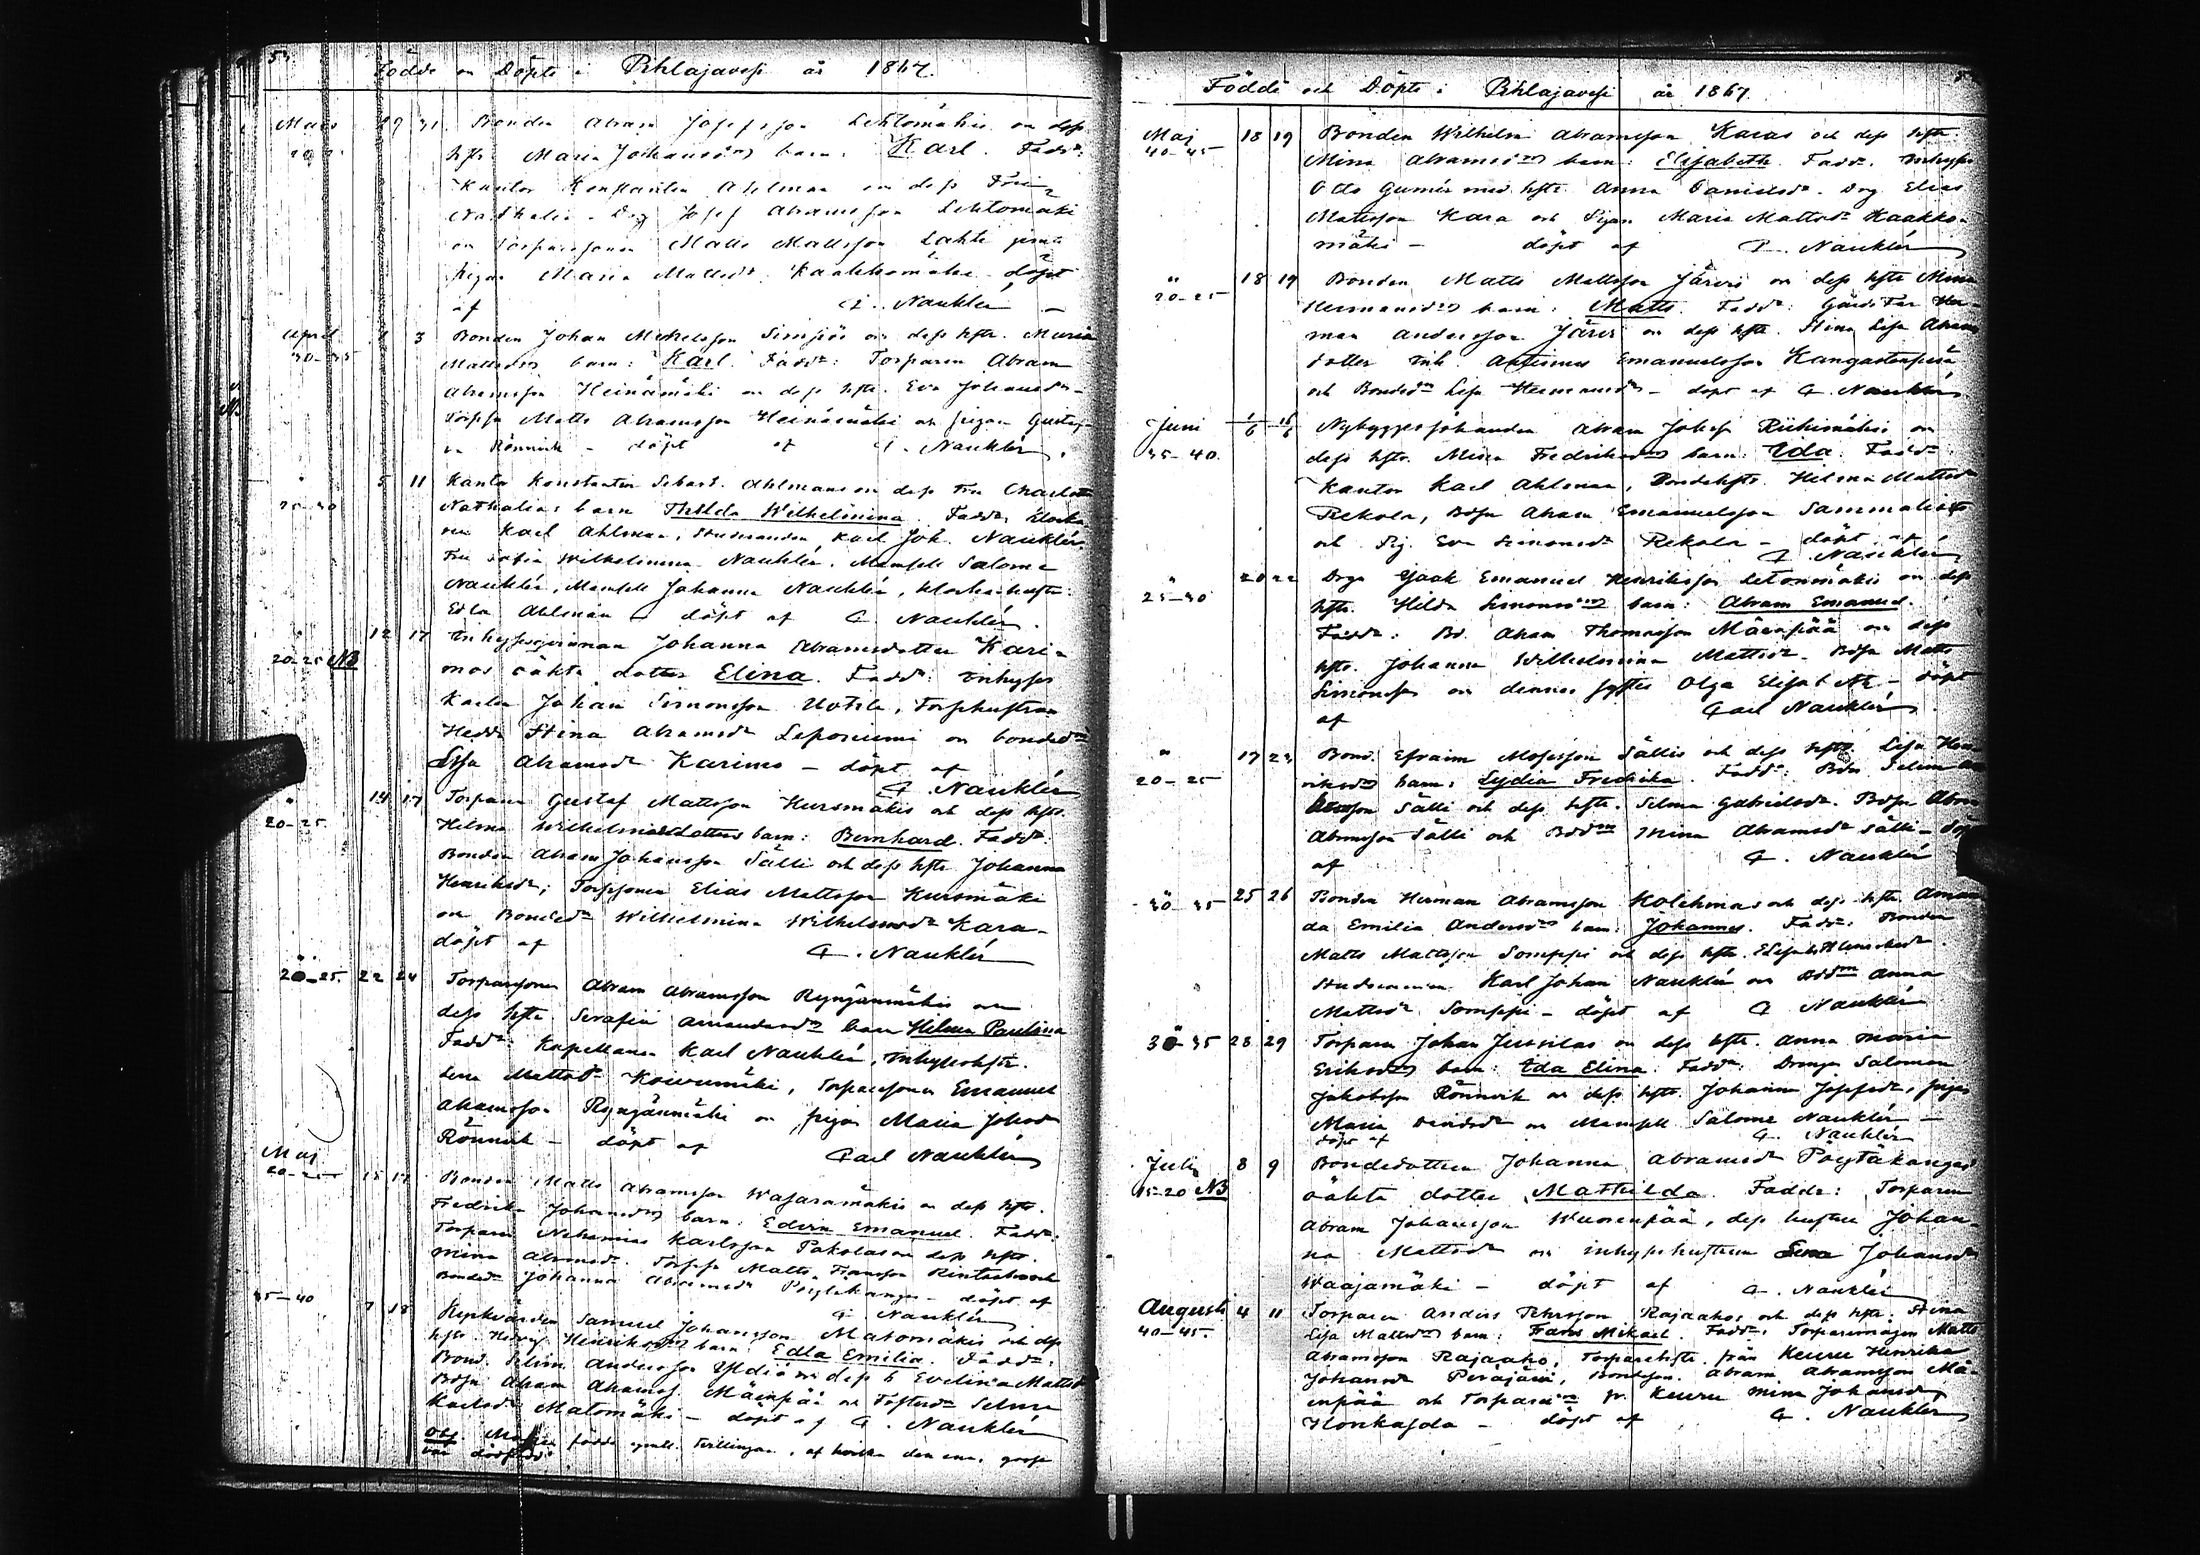 Födde och Döpte i Pihlajavesi år 1867.
Mars 29 31 Bonden Abram Josefsson Lehtomäkis och dess
hfts Maria Johansdrs barn: Karl. Fadd:
Kantor Konstantin Ahlman och dess Fru
Nathalia. Drg Josef Abramsson Lehtomäki
och Torparsonen Matts Mattsson Lahti jemte
pigan Maria Mattsdr Kaakkomäki döpt
af C. Nauklér
April 1 3 Bonden Johan Michelsson Simsiös och dess hfts. Maria
30-35 Mattsdrs barn: Karl. Fadd: Torparen Abram
Abramsson Heinämäki och dess hfts. Eva Johansdr
Torpsn Matts Abramsson Heinämäki och pigan Gusta-
va Rönnvik - döpt af C. Nauklér.
5 11 Kantor Konstantin Sebast. Ahlmans och dess Fru Charlotta
25-30 Nathalias barn Thilda Wilhelmina. Fadd: Klocka-
ren Karl Ahlman, Studeranden Karl Joh. Nauklér,
Fru Sofia Wilhelmina Nauklér, Mamsell Salome
Nauklér, Mamsell Johanna Nauklér, Klockarhustr:
Edla Ahlman - döpt af C. Nauklér.
12 17 Inhysesqvinnan Johanna Abramsdotter Kari-
20-25 NB mos oäkta dotter Elina. Fadd: Inhyses
Karlen Johan Simonsson Uotila, Torphustrun
Hedda Stina Abramsdr Leponiemi och bondedn
Lisa Abramsdr Karimo - döpt af
C. Nauklér
" 14 17 Torparen Gustaf Mattsson Hursmäkis och dess hfts.
20-25. Helena Wilhelmsdotters barn: Bernhard. Fadd:
Bonden Abram Johansson Sälli och dess hfts Johanna
Henriksdr; Torpsonen Elias Mattsson Hursmäki
och Bondedr Wilhelmina Wilhelmsdr Kara-
döpt af C. Nauklér
"
20-25. 22 24 Torparsonen Abram Abramsson Ryngänmäkis och
dess hfts. Serafia Amandasdr barn Hilma Paulina
Fadd: Kapellanen Karl Nauklér, Inhyseshfts.
Lena Mattsdr Koivumäki, Torparsonen Emanuel
Abramsson Ryngänmäki och pigan Maria Johsdr
Rönnvik - döpt af Carl Nauklér
Maj
20-25 15 17 Bonden Matts Abramsson Wasaramäkis och dess hfts.
Fredrika Johansdrs barn: Edvin Emanuel. Fadd:
Torparen Nehemias Karlsson Pakolas och dess hfts.
Mina Abramsdr. Torpsn Matts Fransson Rintaaho och
Bondedr Johanna Abramsdr Pöytäkangas - döpt af
C. Nauklér
35-40 7 18 Kyrkvärden Samuel Johansson Matomäkis och dess
hfts Hedvig Henriksdrs barn: Edla Emilia. Fadd:
Bond. Selim Andersson Yldiä och dess h Evelina Mattsdr
Bdsn Abram Abramss. Mäenpää och Fosterdr Selma
Karlsdr Matomäki - döpt af C. Nauklér
Obs. födde tvillingar, af hvilka den ena, gosse
var dödfödd
Födde och Döpte i Pihlajavesi år 1867.
Maj 18 19 Bonden Wilhelm Abramsson Karas och dess hfts.
40-45 Mina Abramsdrs barn: Elisabeth. Fadd. Inhyses
Otto Gumér med hfts Anna Danielsdr. Drg Elias
Mattsson Kara och Pigan Maria Mattsdr Kaakko-
mäki - döpt af C. Nauklér
" 18 19 Bonden Matts Mattsson Järvis och dess hfts Mina
20-25 Hermansdrs barn: Matts. Fadd: Gårdsfar Her-
man Andersson Järvi och dess hfts. Stina Lisa Abrams
dotter Inh. Antenus Emanuelsson Kangastenperä
och Bondedr Lisa Hermansdr - döpt af C. Nauklér
Juni 6 16 Nybyggesjohanden Abram Johss Riihimäkis och
35-40. dess hfts. Mina Fredriksdrs barn: Ida. Fadd:
Kantor Karl Ahlman, Bondehfts. Hilma Mattsdr
Rekola, Bdsn Abram Emanuelsson Sammalisto
och Pig. Eva Simonsdr Rekola - döpt af
C. Nauklér
" 20 22 Drgn Isaak Emanuel Henriksson Letonmäkis och dess
25-30 hfts. Hilda Simonsdrs barn: Abram Emanuel.
Fadd: Bd. Abram Thomasson Mäenpää och dess
hfts. Johanna Wilhelmina Mattsdr. Bdsn Matts
Simonsson och dennes syster Olga Elisabeth - döpt
af Carl Nauklér
" 17 23 Bond. Efraim Mosesson Sällis och dess hfts. Lisa Hen-
20-25 riksdrs barn: Lydia Fredrika. Fadd: Bdn Selim
Sälli och dess hfts. Selma Gabrielsdr. Bdsn Abram
Abramsson Sälli och Bddn Mina Abramsdr Sälli - döpt
af C. Nauklér
30-35 25 26 Bonden Herman Abramsson Kolehmas och dess hfts Aman-
da Emilia Andersdrs barn: Johannes. Fadd: Bonden
Matts Mattsson Somppi och dess hfts. Elisabeth Henriksdr.
Studeranden Karl Johan Nauklér och Bddn Anna
Mattsdr Somppi - döpt af C. Nauklér
30-35 28 29 Torparen Johan Jussilas och dess hfts. Anna Maria
Eriksdrs barn: Eda Elina. Fadd: Drengen Salomon
Jakobsson Rönnvik och dess hfts. Johanna Josefsdr, pigan
Maria Davidsdr och Mamsell Salome Nauklér -
döpt af C. Nauklér
Juli 8 9 Bondedottren Johanna Abramsdr Pöytäkangas
15-20 NB oäkta dotter Mathilda. Faddr: Torparen
Abram Johansson Wuorenpää, dess hustru Johan-
na Mattsdr och inhyseshustrun Lena Johansdr
Waajamäki - döpt af C. Nauklér
Augusti 4 11 Torparen Anders Pehrsson Rajaahos och dess hfts. Stina
40-45. Lisa Mattsdrs barn: Frans Mikael. Fadd: Torparemågen Matts
Abramsson Rajaaho, Torparehfts. från Keuru Henrika
Johansdr Peräjärvi, Bondson. Abram Abramsson Mä-
enpää och Torparedn fr. Keuru Mina Johansdr
Honkasda - döpt af C. Nauklér